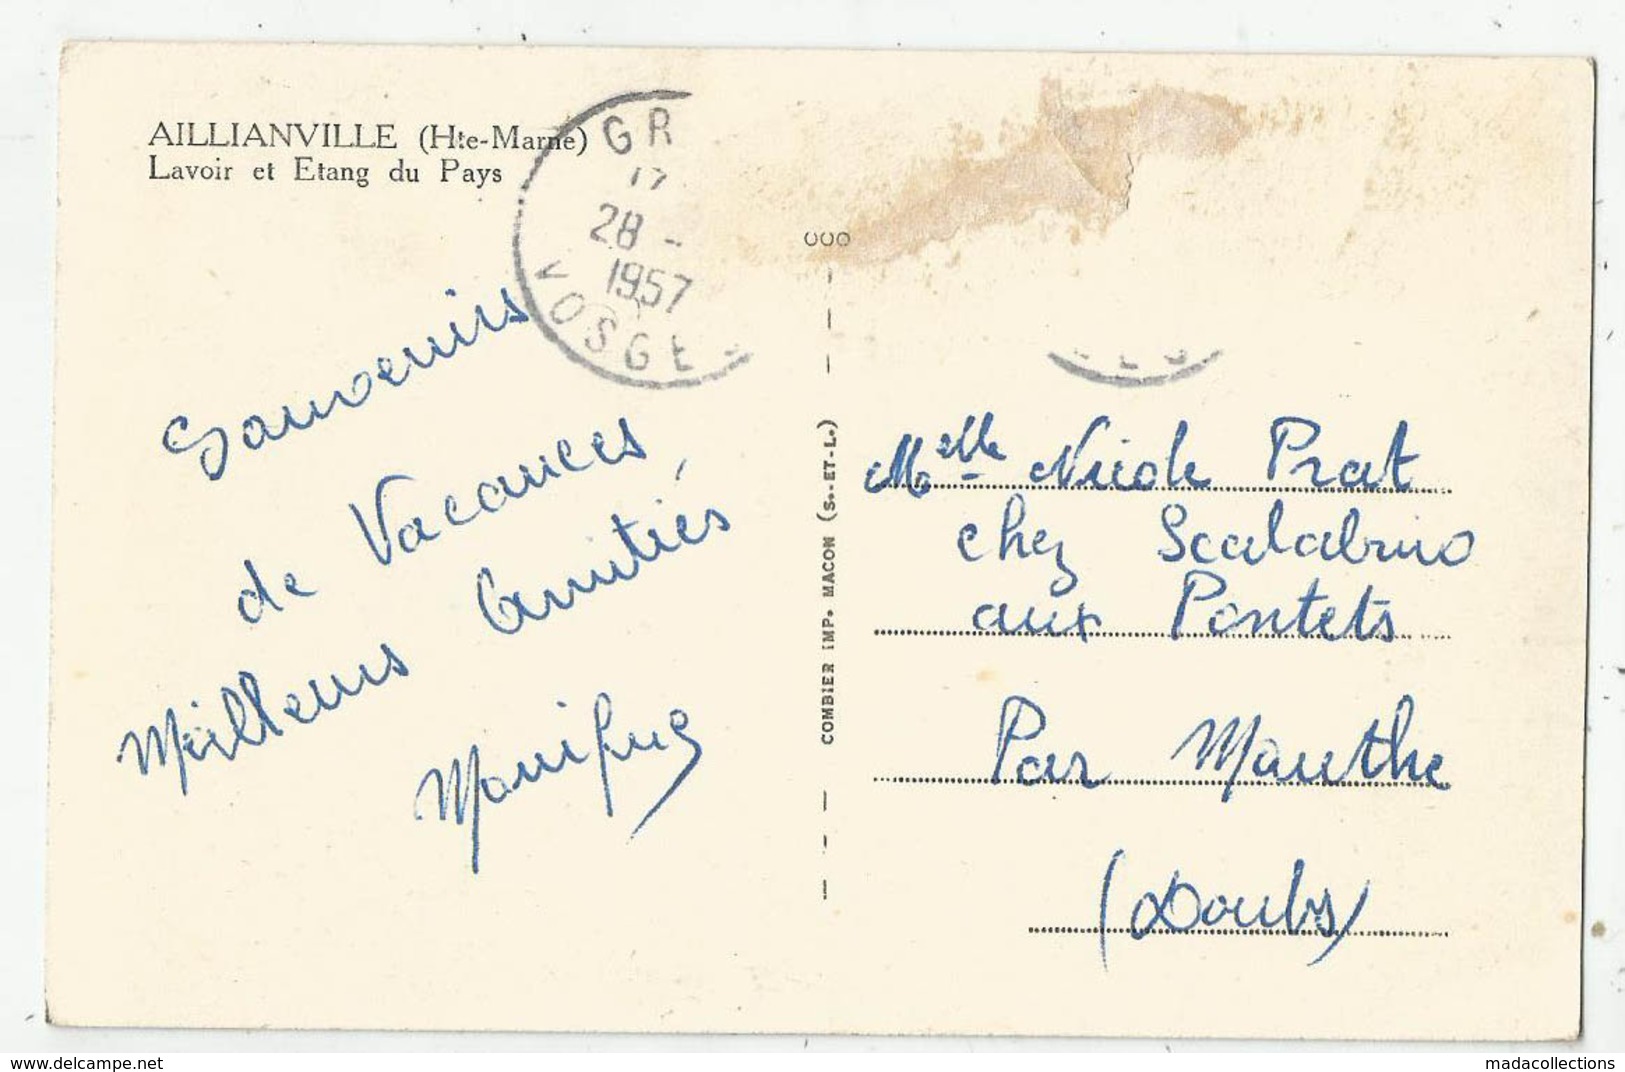 AILLIANVILLE (Hte-Marne)
Lavoir et Etang du Pays
GR
17
28 -
1957
VOSGES
Souvenirs
de Vacances
Meilleurs Amitiés
COMBIER IMP. MACON (S.-ET-L.)
Melle Nicole Prat
chez Scalabrino
aux Pontets
Par Mouthe
(Doubs)
https://www.delcampe.net
madacollections